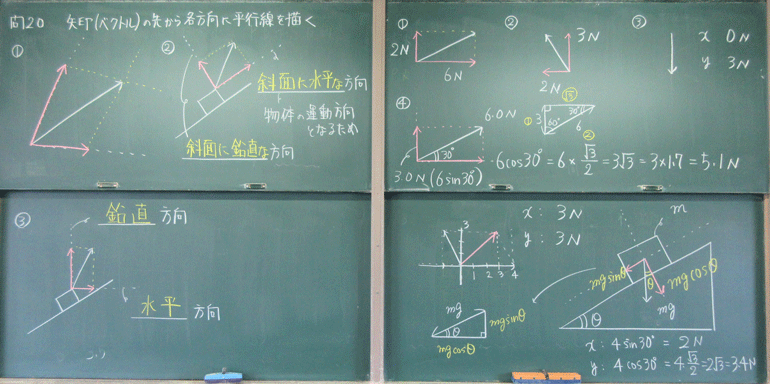 問20 矢印(ベクトル)の先から各方向に平行線を描く
①
②
斜面に水平な方向
物体の運動方向
となるため
斜面に鉛直な方向
③
鉛直方向
水平方向
①
2N
6N
②
3N
2N
③
x 0N
y 3N
④
6.0N
30°
3.0N(6sin30°)
√3
① 3 60° 30° 6
②
・6cos30° = 6×√3/2 = 3√3 = 3×1.7 = 5.1N
x: 3N
y: 3N
3
1 2 3 4
m
mgsinθ
θ
mgcosθ
mg
θ
mg
mgsinθ
θ
mgcosθ
x: 4sin30° = 2N
y: 4cos30° = 4·√3/2 = 2√3 = 3.4N